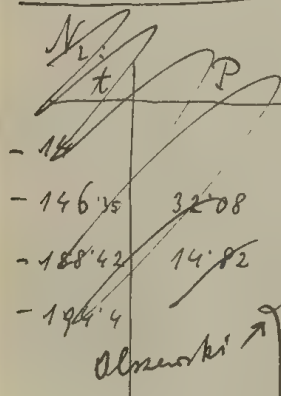 N₂:
t P
- 14
- 146·35 32·08
- 188·42 14·82
- 194·4
Olszewski